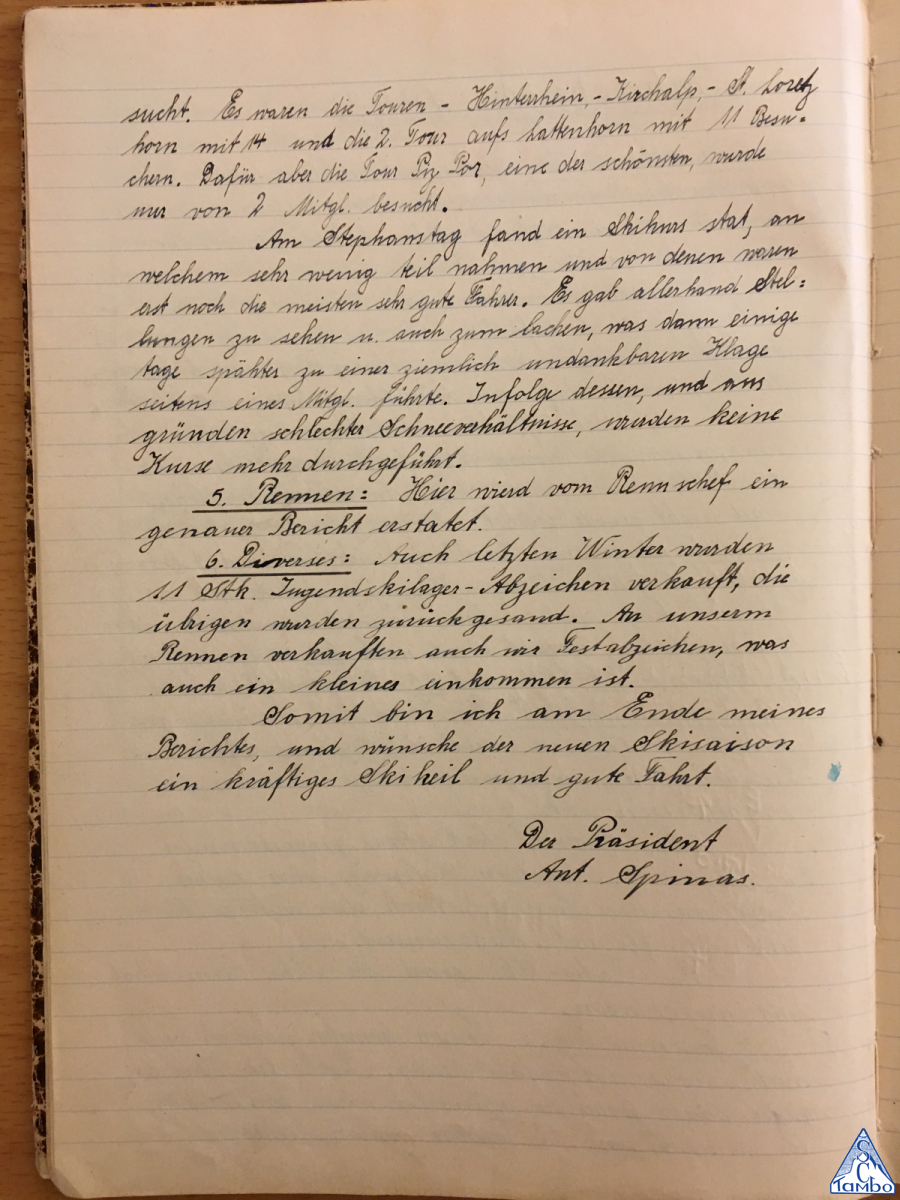 sucht. Es waren die Touren - Hinterrhein, - Kirchalp, - St. Loretz
horn mit 14 und die 2. Tour aufs Lattenhorn mit 11 Besu=
chern. Dafür aber die Tour Piz Por, eine der schönsten, wurde
nur von 2 Mitgl. besucht.
Am Stephanstag fand ein Skikurs stat, an
welchem sehr wenig teil nahmen und von denen waren
erst noch die meisten sehr gute Fahrer. Es gab allerhand Stel=
lungen zu sehen u. auch zum lachen, was dann einige
tage spähter zu einer ziemlich undankbaren Klage
seitens eines Mitgl. führte. Infolge dessen, und aus
gründen schlechter Schneeverhältnisse, wurden keine
Kurse mehr durchgeführt.
5. Rennen: Hier wierd vom Rennschef ein
genauer Bericht erstatet.
6. Diverses: Auch letzten Winter wurden
11 Stk. Jugendskilager-Abzeichen verkauft, die
übrigen wurden zürückgesand. An unserm
Rennen verkauften auch wir Festabzeichen, was
auch ein kleines einkommen ist.
Somit bin ich am Ende meines
Berichtes, und wünsche der neuen Skisaison
ein kräftiges Ski heil und gute Fahrt.
Der Präsident
Ant. Spinas.
SC
Tambo